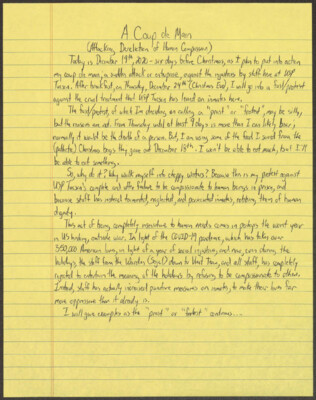 A Coup de Main
(Attacking Dereliction of Human Compassion)
Today is December 19th, 2020 - six days before Christmas, as I plan to put into action
my coup de main, a sudden attack or enterprise, against the injustices by staff here at USP
Tucson. After breakfast, on Thursday, December 24th (Christmas Eve), I will go into a fast/protest
against the cruel treatment that USP Tucson has forced on inmates here.
The fast/protest, of which I'm deciding on calling a "proast" or "fastest", may be silly,
but the reasons are not. From Thursday until at least 9 days or more then I can likely ,
normally it would be the death of a person. But, I am using some of the food I saved from the
(pathetic) Christmas bags they gave out December 18th. I won't be able to eat much, but I'll
be able to eat something.
So, why do it? Why walk myself into choppy waters? Because this is my protest against
USP Tucson's complete and utter failure to be compassionate to human beings in prison, and
because staff has instead tormented, neglected, and persecuted inmates, robbing them of human
dignity.
This act of being completely insensitive to human needs comes in perhaps the worst year
in US history, outside war. In light of the COVID-19 pandemic, which has taken over
300,000 American lives, in light of a year of social injustice, and now even during the
holidays the staff from the Warden (Segal) down to Unit Team, and all staff, has completely
rejected to entertain the meaning of the holidays by refusing to be compassionate to others.
Indeed, staff has actually increased punitive measures on inmates, to make these burn far
more oppressive than it already is.
I will give examples as the "proast" or "fastest" continues...